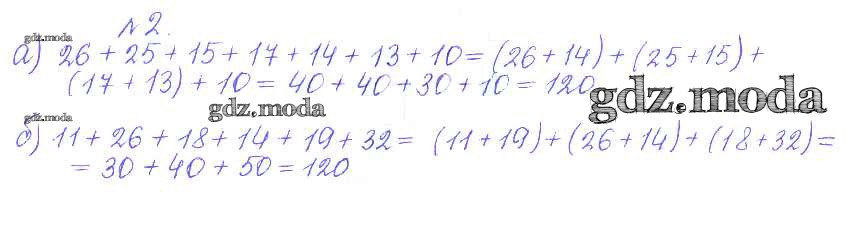 №2.
gdz.moda
а) 26 + 25 + 15 + 17 + 14 + 13 + 10 = (26 + 14) + (25 + 15) +
(17 + 13) + 10 = 40 + 40 + 30 + 10 = 120
gdz.moda
gdz.moda
gdz.moda
б) 11 + 26 + 18 + 14 + 19 + 32 = (11 + 19) + (26 + 14) + (18 + 32) =
= 30 + 40 + 50 = 120